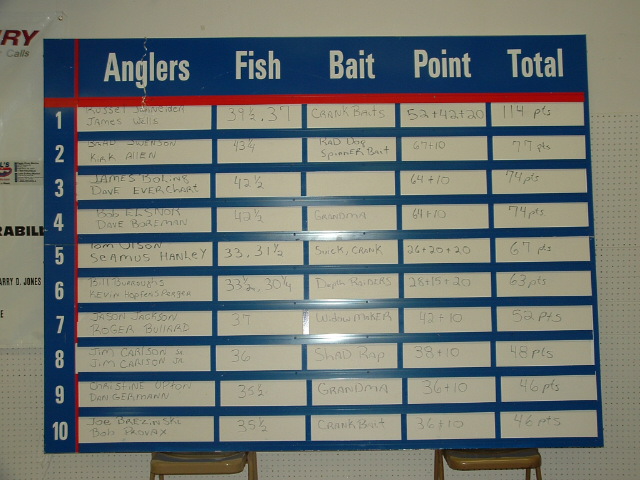 RY
Calls
Anglers Fish Bait Point Total
1 Russel Schneider
James Wells 39½, 37 CRANKBAITS 52+42+20 114 pts
2 BRAD SWENSON
KIRK ALLEN 43¼ RAD DOG
SPINNERBAIT 67+10 77 pts
3 JAMES BOLING
DAVE EVERCHART 42½ 64+10 74 pts
4 BOB ELSNOR
DAVE BOREMAN 42½ GRANDMA 64+10 74 pts
5 TOM OLSON
SEAMUS HANLEY 33, 31½ CRANK 26+20+20 67 pts
6 Bill Burroughs
KEVIN 30¼ Depth RAIDERS 28+15+20 63 pts
7 JASON JACKSON
ROGER BULLARD 37 WIDOWMAKER 42+10 52 pts
8 JIM CARLSON SR
JIM CARLSON JR 36 SHAD RAP 38+10 48 pts
9 CHRISTINE UPTON
DAN GERMANN 35½ GRANDMA 36+10 46 pts
10 JOE BREZINSKI
BOB PROVAX 35½ CRANKBAIT 36+10 46 pts
RABILI
ARRY D. JONES